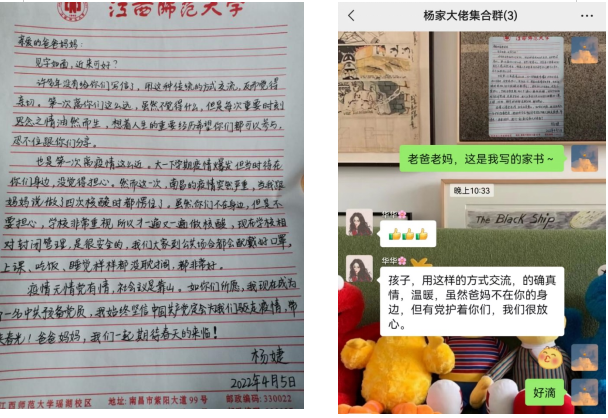 江西师范大学
亲爱的爸爸妈妈:
见字如面,近来可好?
许多年没有给你们写信了,用这种传统的方式交流,反而觉得
亲切。第一次离你们这么远,虽然不觉得什么,但是每次重要时刻
思念之情油然而生,想着人生的重要经历希望你们都可以参与,
忍不住跟你们分享。
也是第一次离疫情这么近。大一下学期疫情爆发但当时待在
你们身边,没觉得担心。然而这一次,南昌的疫情突然严重,当我跟
妈妈说做了四次核酸时都愣住了,虽然你们不在身边,但是不
要担心,学校非常重视,所以才一遍又一遍做核酸,现在学校相
对封闭管理,是很安全的,我们大家到公共场合都会配戴好口罩。
上课、吃饭、睡觉样样都没耽误,都非常好。
疫情无情党有情,社会就是靠山。如你们所愿,我现在成为
一名中共预备党员,我始终坚信中国共产党定会为我们驱走疫情,带
来春光!爸爸妈妈,我们一起期待春天的来临!
杨婕
2022年4月5日
江西师范大学瑶湖校区 地址:南昌市紫阳大道99号 邮政编码:330022
杨家大佬集合群(3)
老爸老妈,这是我写的家书~
晚上10:33
The Black Ship
华华🌸
👍👍👍
华华🌸
孩子,用这样的方式交流,的确真
情,温暖,虽然爸妈不在你的身
边,但有党护着你们,我们很放
心。
好滴